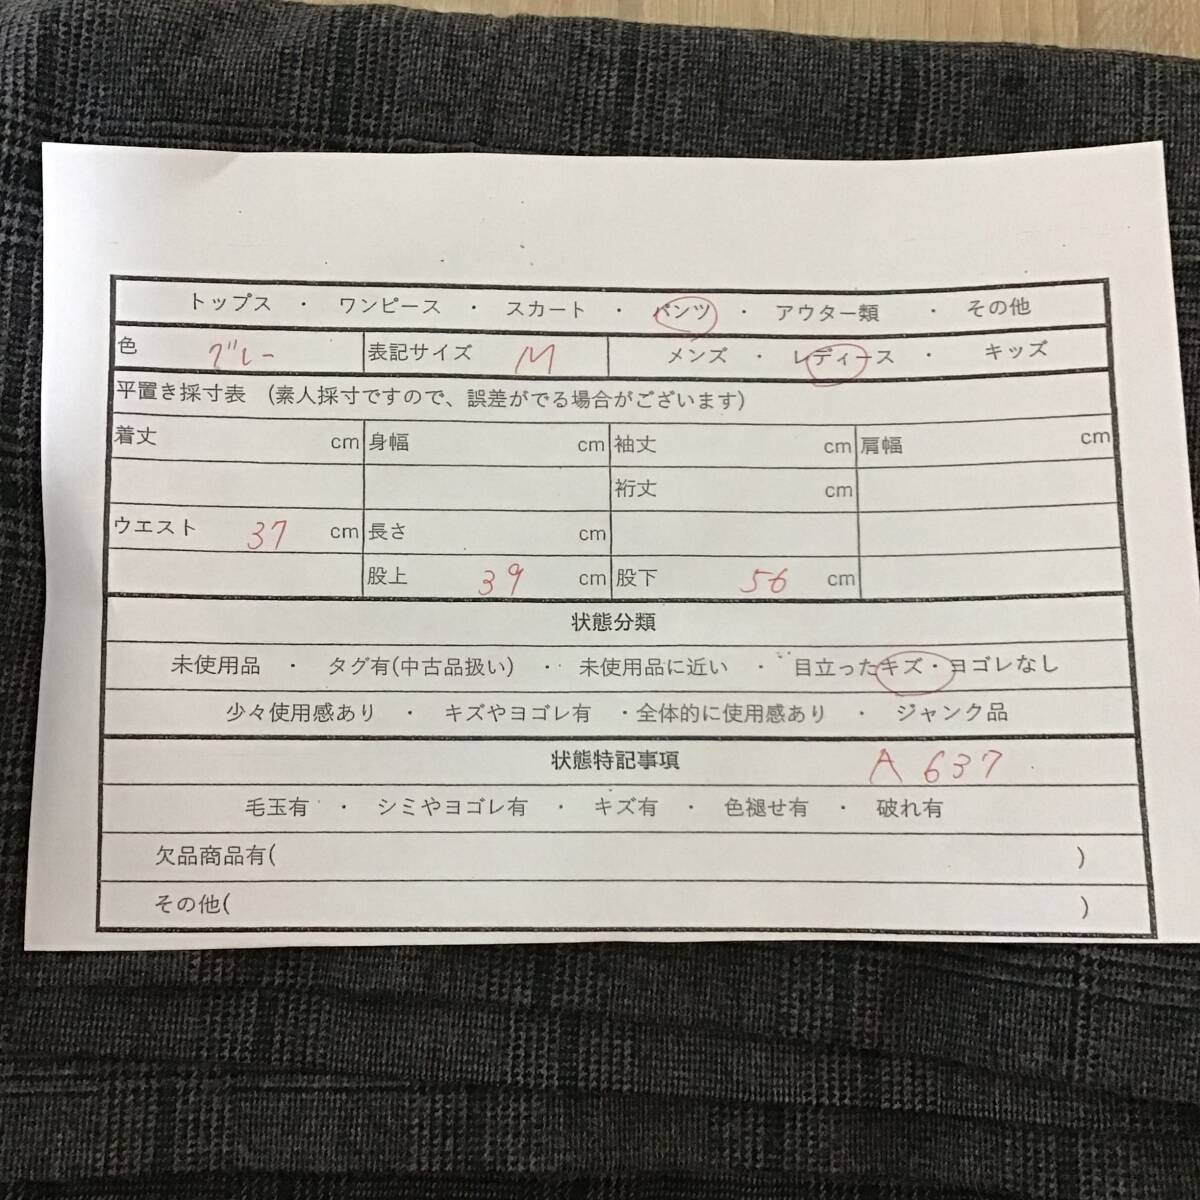 トップス ・ ワンピース ・ スカート ・ パンツ ・ アウター類 ・ その他
色 グレー 表記サイズ M メンズ ・ レディース ・ キッズ
平置き採寸表 (素人採寸ですので、誤差がでる場合がございます)
着丈 cm 身幅 cm 袖丈 cm 肩幅 cm
裄丈 cm
ウエスト 37 cm 長さ cm
股上 39 cm 股下 56 cm
状態分類
未使用品 ・ タグ有(中古品扱い) ・ 未使用品に近い ・ 目立ったキズ・ヨゴレなし
少々使用感あり ・ キズやヨゴレ有 ・全体的に使用感あり ・ ジャンク品
状態特記事項 A 637
毛玉有 ・ シミやヨゴレ有 ・ キズ有 ・ 色褪せ有 ・ 破れ有
欠品商品有( )
その他( )